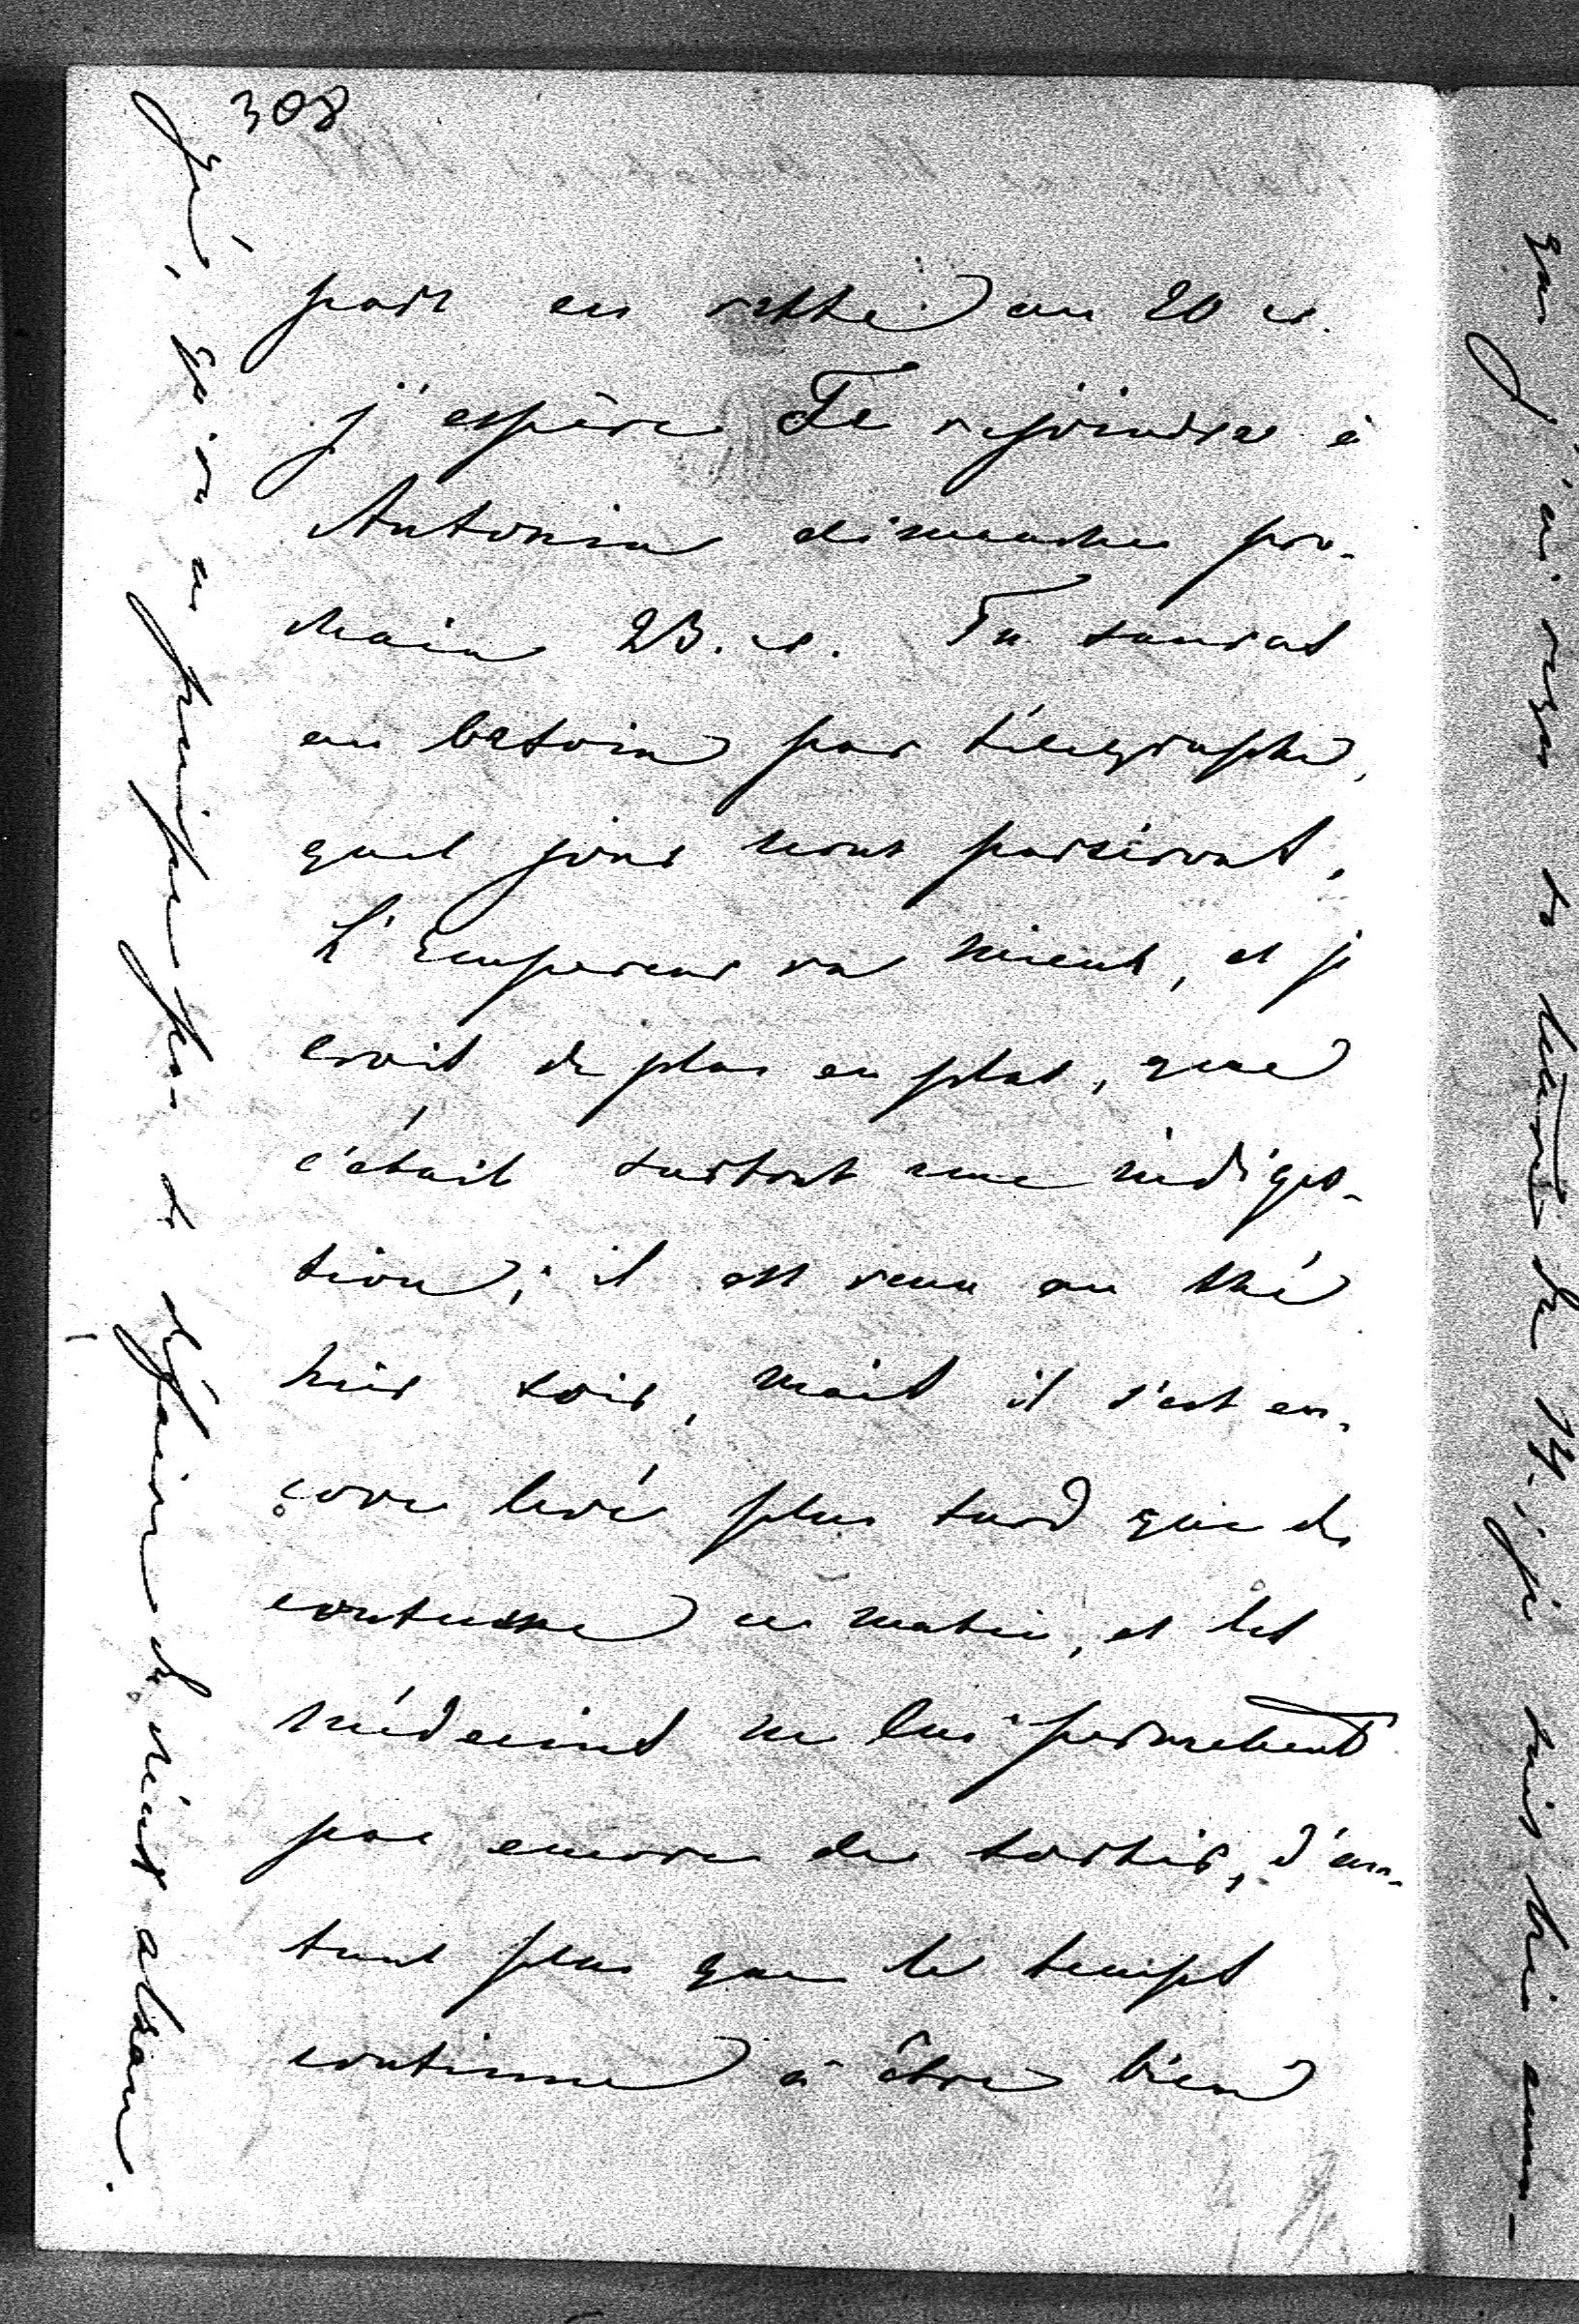 308
part en reste au 20 cr.
j'espère Te rejoindre à
Antonin dimanche pro-
chain 23. cr. Tu sauras
au besoin par télégraphe,
quel jour nous partirons.
L'Empereur va mieux, et je
crois de plus en plus, que
c'était surtout une indiges-
tion; il est venu au thé
hier soir, mais il s'est en-
core levé plus tard que de
coutume ce matin, et les
médecins ne lui permettent
pas encore de sortir, d'au-
tant plus que le temps
continue à être bien
gé, qu'on a
que j'ai reçu ta lettre du 14.; je suis très